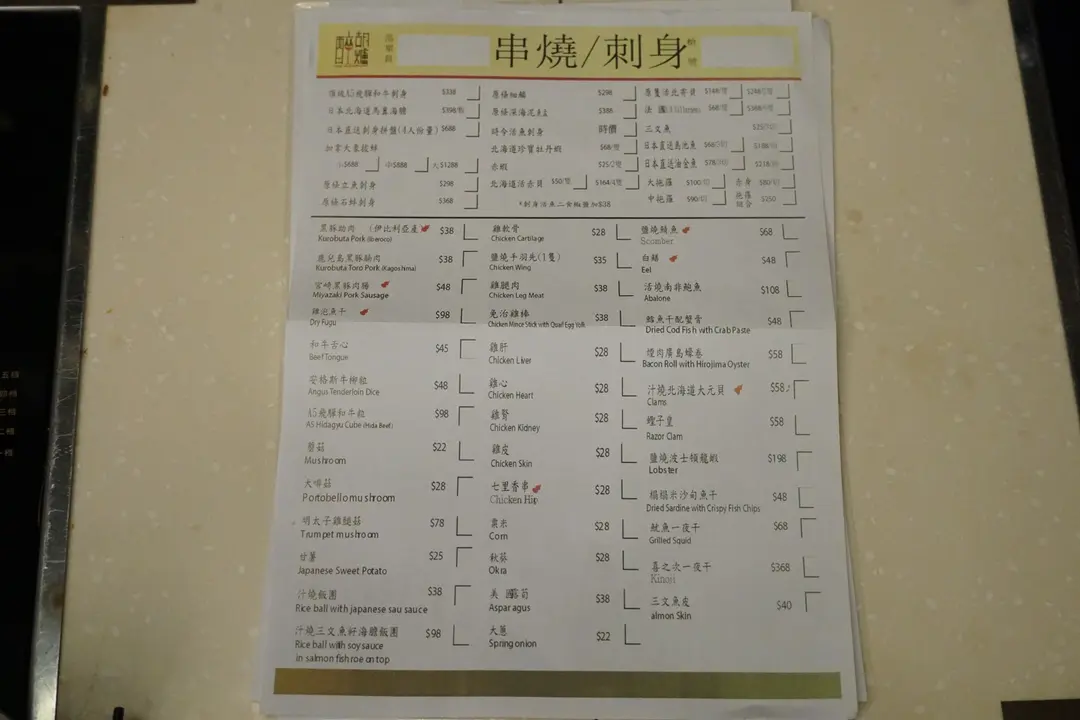 串燒/刺身
飛驒和牛刺身 $338
日本北海道馬糞海膽
日本直送刺身拼盤(4人份量) $688
加拿大象拔蚌
小$688 中$888 大$1288
原條立魚刺身 $298
原條石蚌刺身 $368
原條 $298
原條深海 $388
時令活魚刺身 時價
北海道珍寶牡丹蝦
赤蝦
北海道活赤貝
*刺身活魚二食椒鹽加$38
原隻活北寄貝
法國
三文魚
日本直送島池魚
日本直送油金魚
大拖羅 赤身
中拖羅 拖羅
黑豚助肉 (伊比利亞產 $38
Kurobuta Pork (Iberoco)
鹿兒島黑豚腩肉 $38
Kurobuta Toro Pork (Kagoshima)
宮崎黑豚肉腸 $48
Miyazaki Pork Sausage
雞泡魚干 $98
Dry Fugu
和牛舌心 $45
Beef Tongue
安格斯牛柳粒 $48
Angus Tenderloin Dice
A5飛驒和牛粒 $98
A5 Hidagyu Cube (Hida Beef)
蘑菇 $22
Mushroom
大啡菇 $28
Portobello mushroom
明太子雞腿菇 $78
Trumpet mushroom
甘薯 $25
Japanese Sweet Potato
汁燒飯團 $38
Rice ball with japanese sau sauce
汁燒三文魚籽海膽飯團 $98
Rice ball with soy sauce
in salmon fish roe on top
雞軟骨 $28
Chicken Cartilage
鹽燒手羽先(1隻) $35
Chicken Wing
雞腿肉 $38
Chicken Leg Meat
免治雞棒 $38
Chicken Mince Stick with Qsaef Egg Yolk
雞肝 $28
Chicken Liver
雞心 $28
Chicken Heart
雞腎 $28
Chicken Kidney
雞皮 $28
Chicken Skin
七里香串 $28
Chicken Hip
粟米 $28
Corn
秋葵 $28
Okra
美國露筍 $38
Asparagus
大蔥 $22
Spring onion
鹽燒鯖魚 $68
Scomber
白鱔 $48
Eel
活燒南非鮑魚 $108
Abalone
鱈魚干配蟹膏 $48
Dried Cod Fish with Crab Paste
煙肉廣島蠔卷 $58
Bacon Roll with Hirojima Oyster
汁燒北海道大元貝 $58
Clams
蟶子皇 $58
Razor Clam
鹽燒波士頓龍蝦 $198
Lobster
榻榻米沙甸魚干 $48
Dried Sardine with Crispy Fish Chips
魷魚一夜干 $68
Grilled Squid
喜之次一夜干 $368
Kinoji
三文魚皮 $40
almon Skin